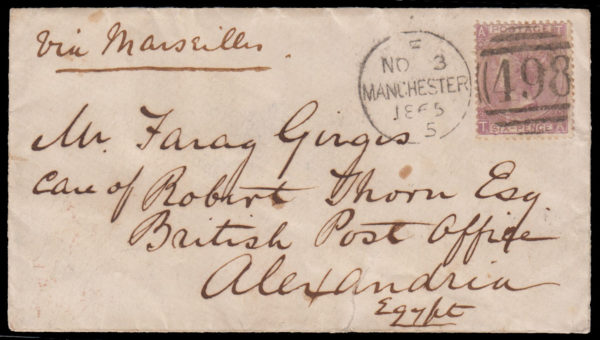 Via Marseilles.
F
NO 3
MANCHESTER
1865
5
A POSTAGE T
498
T SIX-PENCE A
Mr. Farag Girgis
Care of Robert Thorn Esq.
British Post Office
Alexandria
Egypt